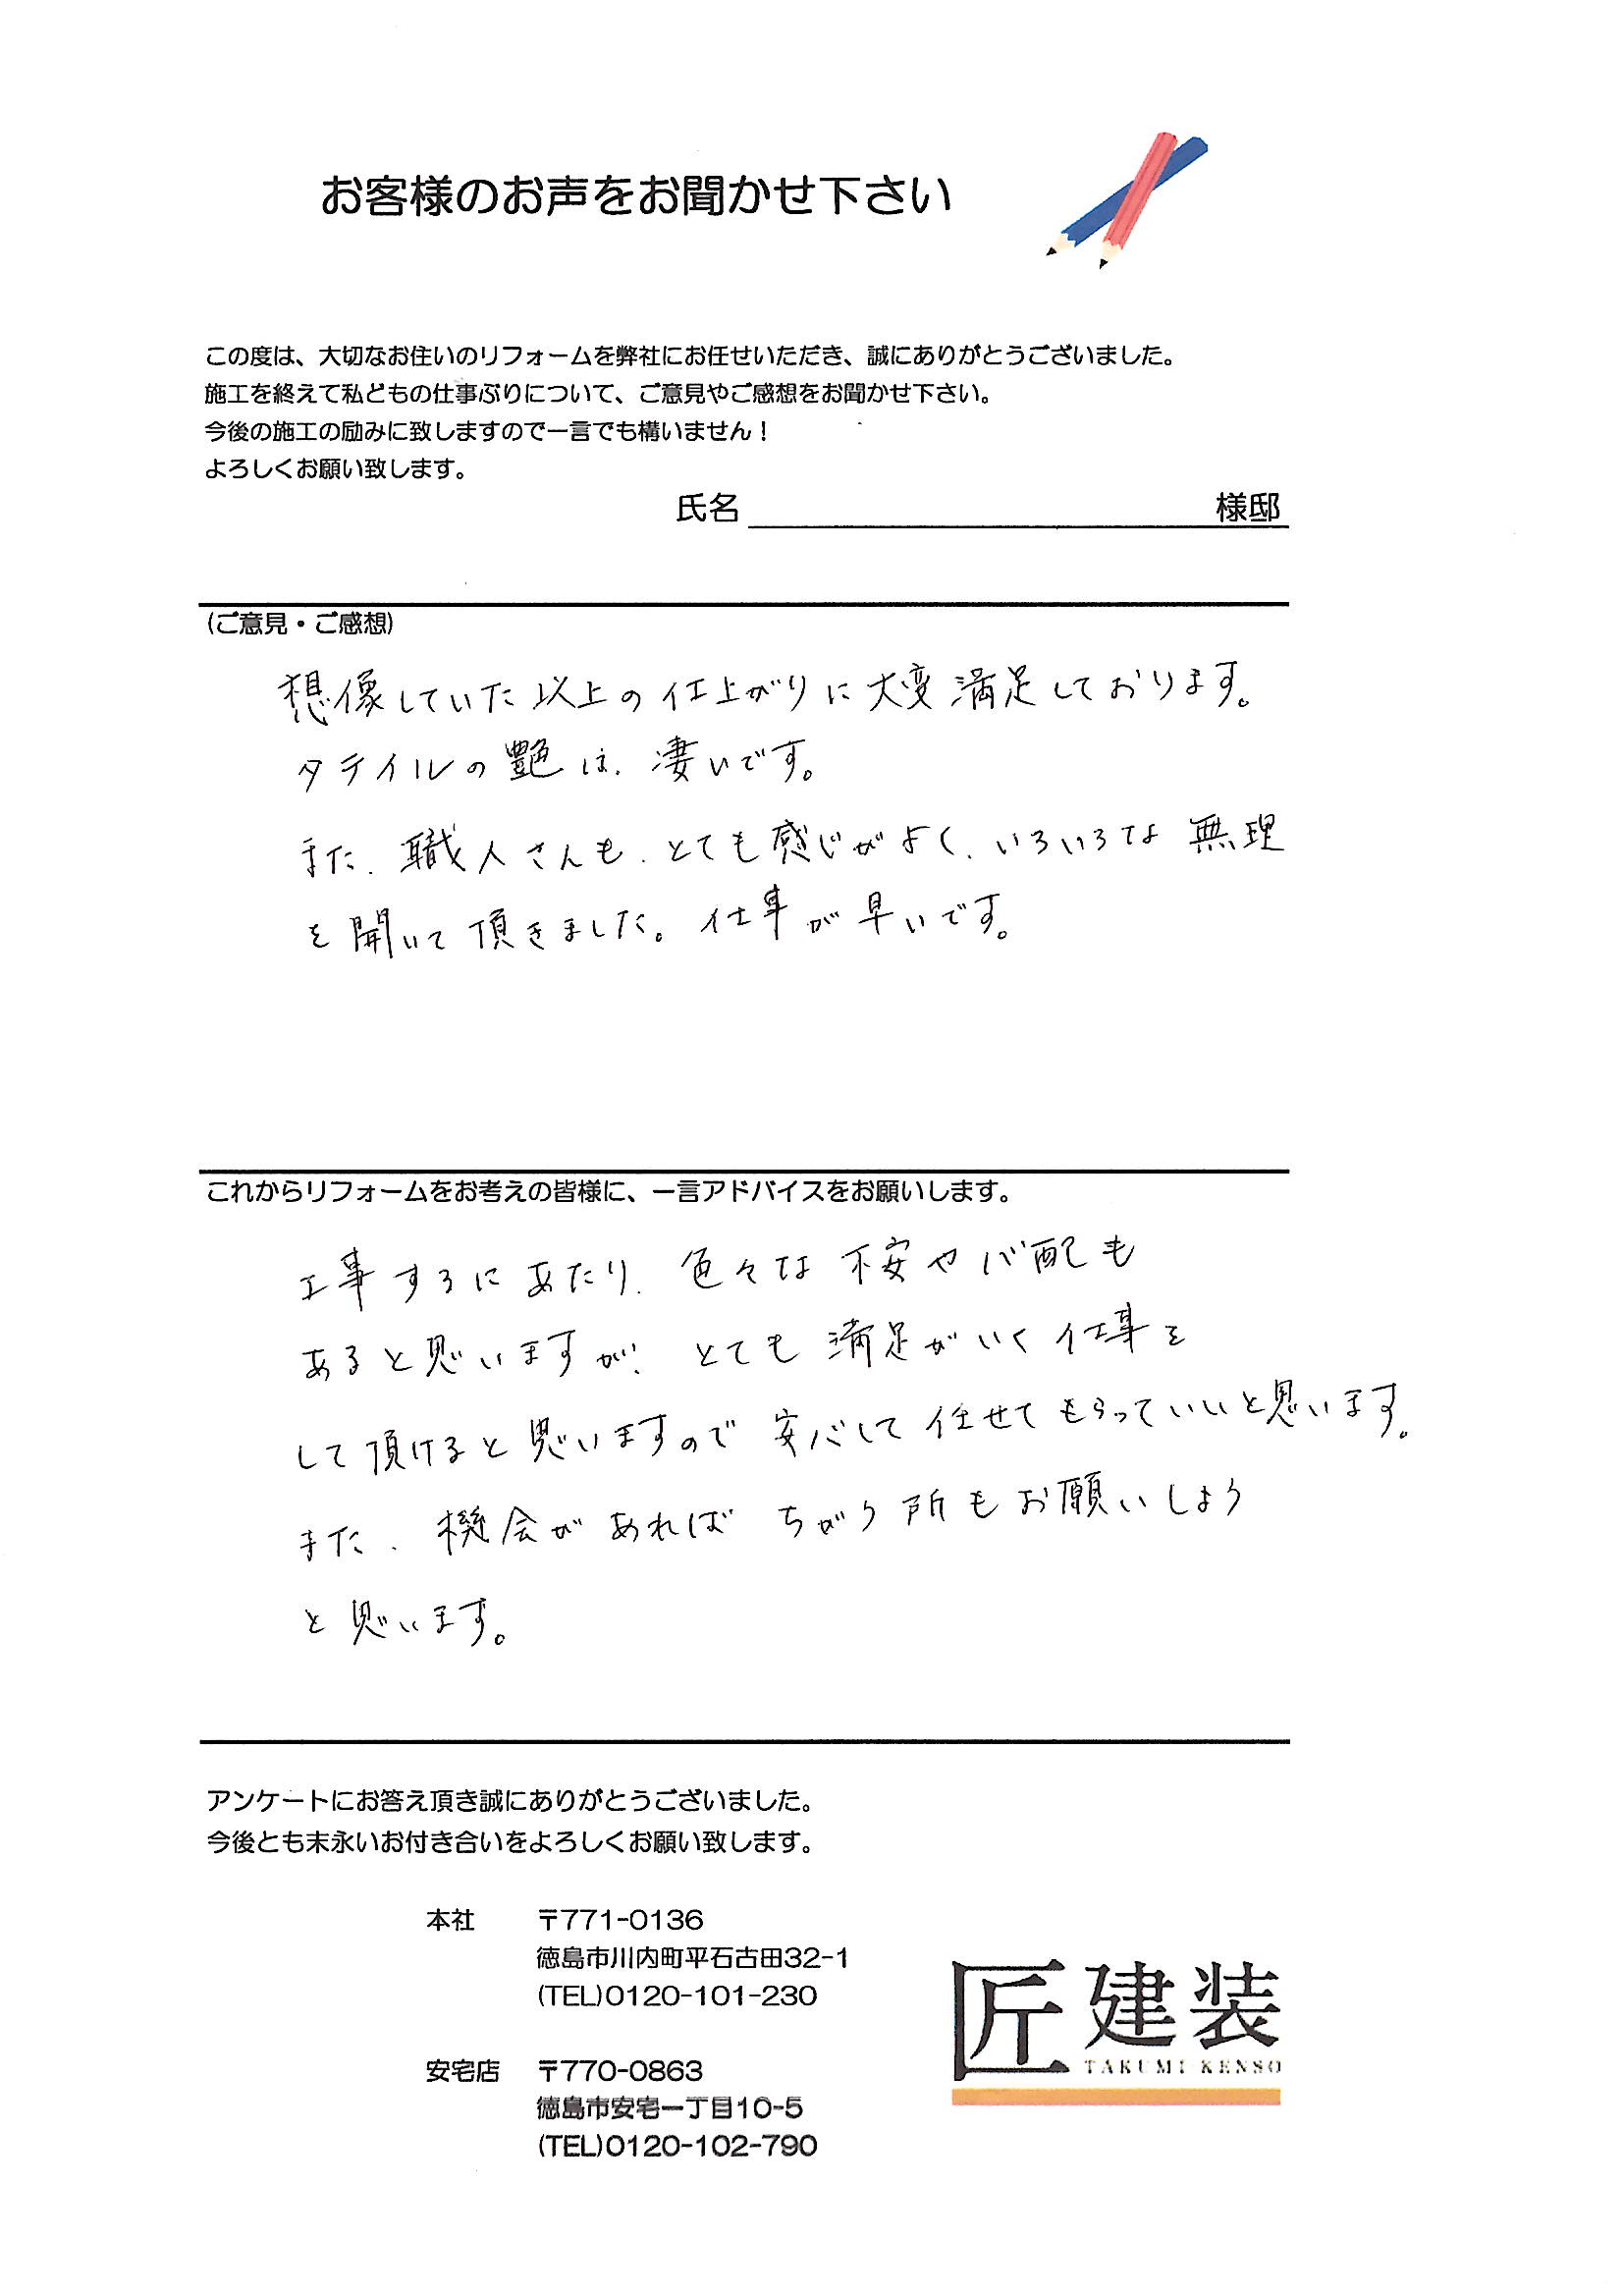 お客様のお声をお聞かせ下さい
この度は、大切なお住いのリフォームを弊社にお任せいただき、誠にありがとうございました。
施工を終えて私どもの仕事ぶりについて、ご意見やご感想をお聞かせ下さい。
今後の施工の励みに致しますので一言でも構いません！
よろしくお願い致します。
氏名 様邸
(ご意見・ご感想)
想像していた以上の仕上がりに大変満足しております。
タテイルの艶は、凄いです。
また、職人さんも、とても感じがよく、いろいろな無理
を聞いて頂きました。仕事が早いです。
これからリフォームをお考えの皆様に、一言アドバイスをお願いします。
工事するにあたり、色々な不安や心配も
あると思いますが、とても満足がいく仕事を
して頂けると思いますので安心して任せてもらっていいと思います。
また、機会があればちがう所もお願いしよう
と思います。
アンケートにお答え頂き誠にありがとうございました。
今後とも末永いお付き合いをよろしくお願い致します。
本社 〒771-0136
徳島市川内町平石古田32-1
(TEL)0120-101-230
匠建装
TAKUMI KENSO
安宅店 〒770-0863
徳島市安宅一丁目10-5
(TEL)0120-102-790